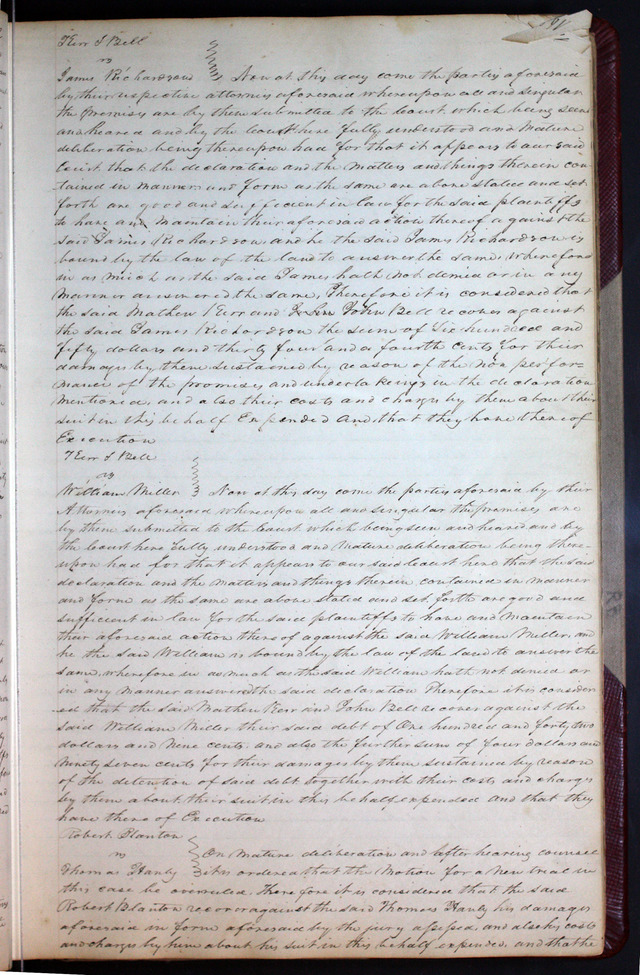 Kerr & Bell
vs
James Richardson } Now at this day come the parties aforesaid
by their respective attorneys aforesaid whereupon all and singular
the premises are by them submitted to the Court which being seen
and heared and by the Court here fully understood and Mature
deliberation being thereupon had for that it appears to our said
Court that the declaration and the Matters and things therein con
tained in manner and form as the same are above stated and set
forth are good and sufficient in law for the said plaintiffs
to have and maintain their aforesaid action thereof against the
said James Richardson and he the said James Richardson is
bound by the law of the land to answer the same, wherefore
in as much as the said James hath not denied or in any
manner answered the same, Therefore it is considered that
the said Mathew Kerr and John Bell recover against
the said James Richardson the sum of Six hundred and
fifty dollars and thirty four and a fourth cents for their
damages by them sustained by reason of the non perfor=
mance of the promises and undertakeings in the declaration
mentioned, and also their costs and charges by them about their
suit in this behalf Expended And that they have thereof
Execution
Kerr & Bell
vs
William Miller } Now at this day come the parties aforesaid by their
Attorneis aforesaid whereupon all and singular the premises are
by them submitted to the Court which being seen and heared and by
the Court here fully understood and Mature deliberation being there-
upon had for that it appears to our said Court here that the said
declaration and the Matters and things therein contained in manner
and form as the same are above stated and set forth are good and
sufficient in law for the said plaintiffs to have and maintain
their aforesaid action thereof against the said William Miller, and
he the said William is bound by the law of the land to answer the
same, wherefore in as much as the said William hath not denied or
in any manner answered the said declaration Therefore it is consider
ed that the said Mathew Kerr and John Bell recover against the
said William Miller their said debt of One hundred and forty two
dollars and Nine cents. and also the further sum of four dollars and
Ninety seven cents for their damages by them sustained by reason
of the detention of said debt together with their costs and charges
by them about their suit in this behalf expended and that they
have there of Execution
Robert Blanton
vs
Thomas Hanly } On mature deliberation and after hearing counsel
it is ordered that the Motion for a new trial in
this case be overruled. Therefore it is considered that the said
Robert Blanton recover against the said Thomas Hanly his damages
aforesaid in form aforesaid by the jury assessed and also his costs
and charges by him about his suit in this behalf expended. and that he